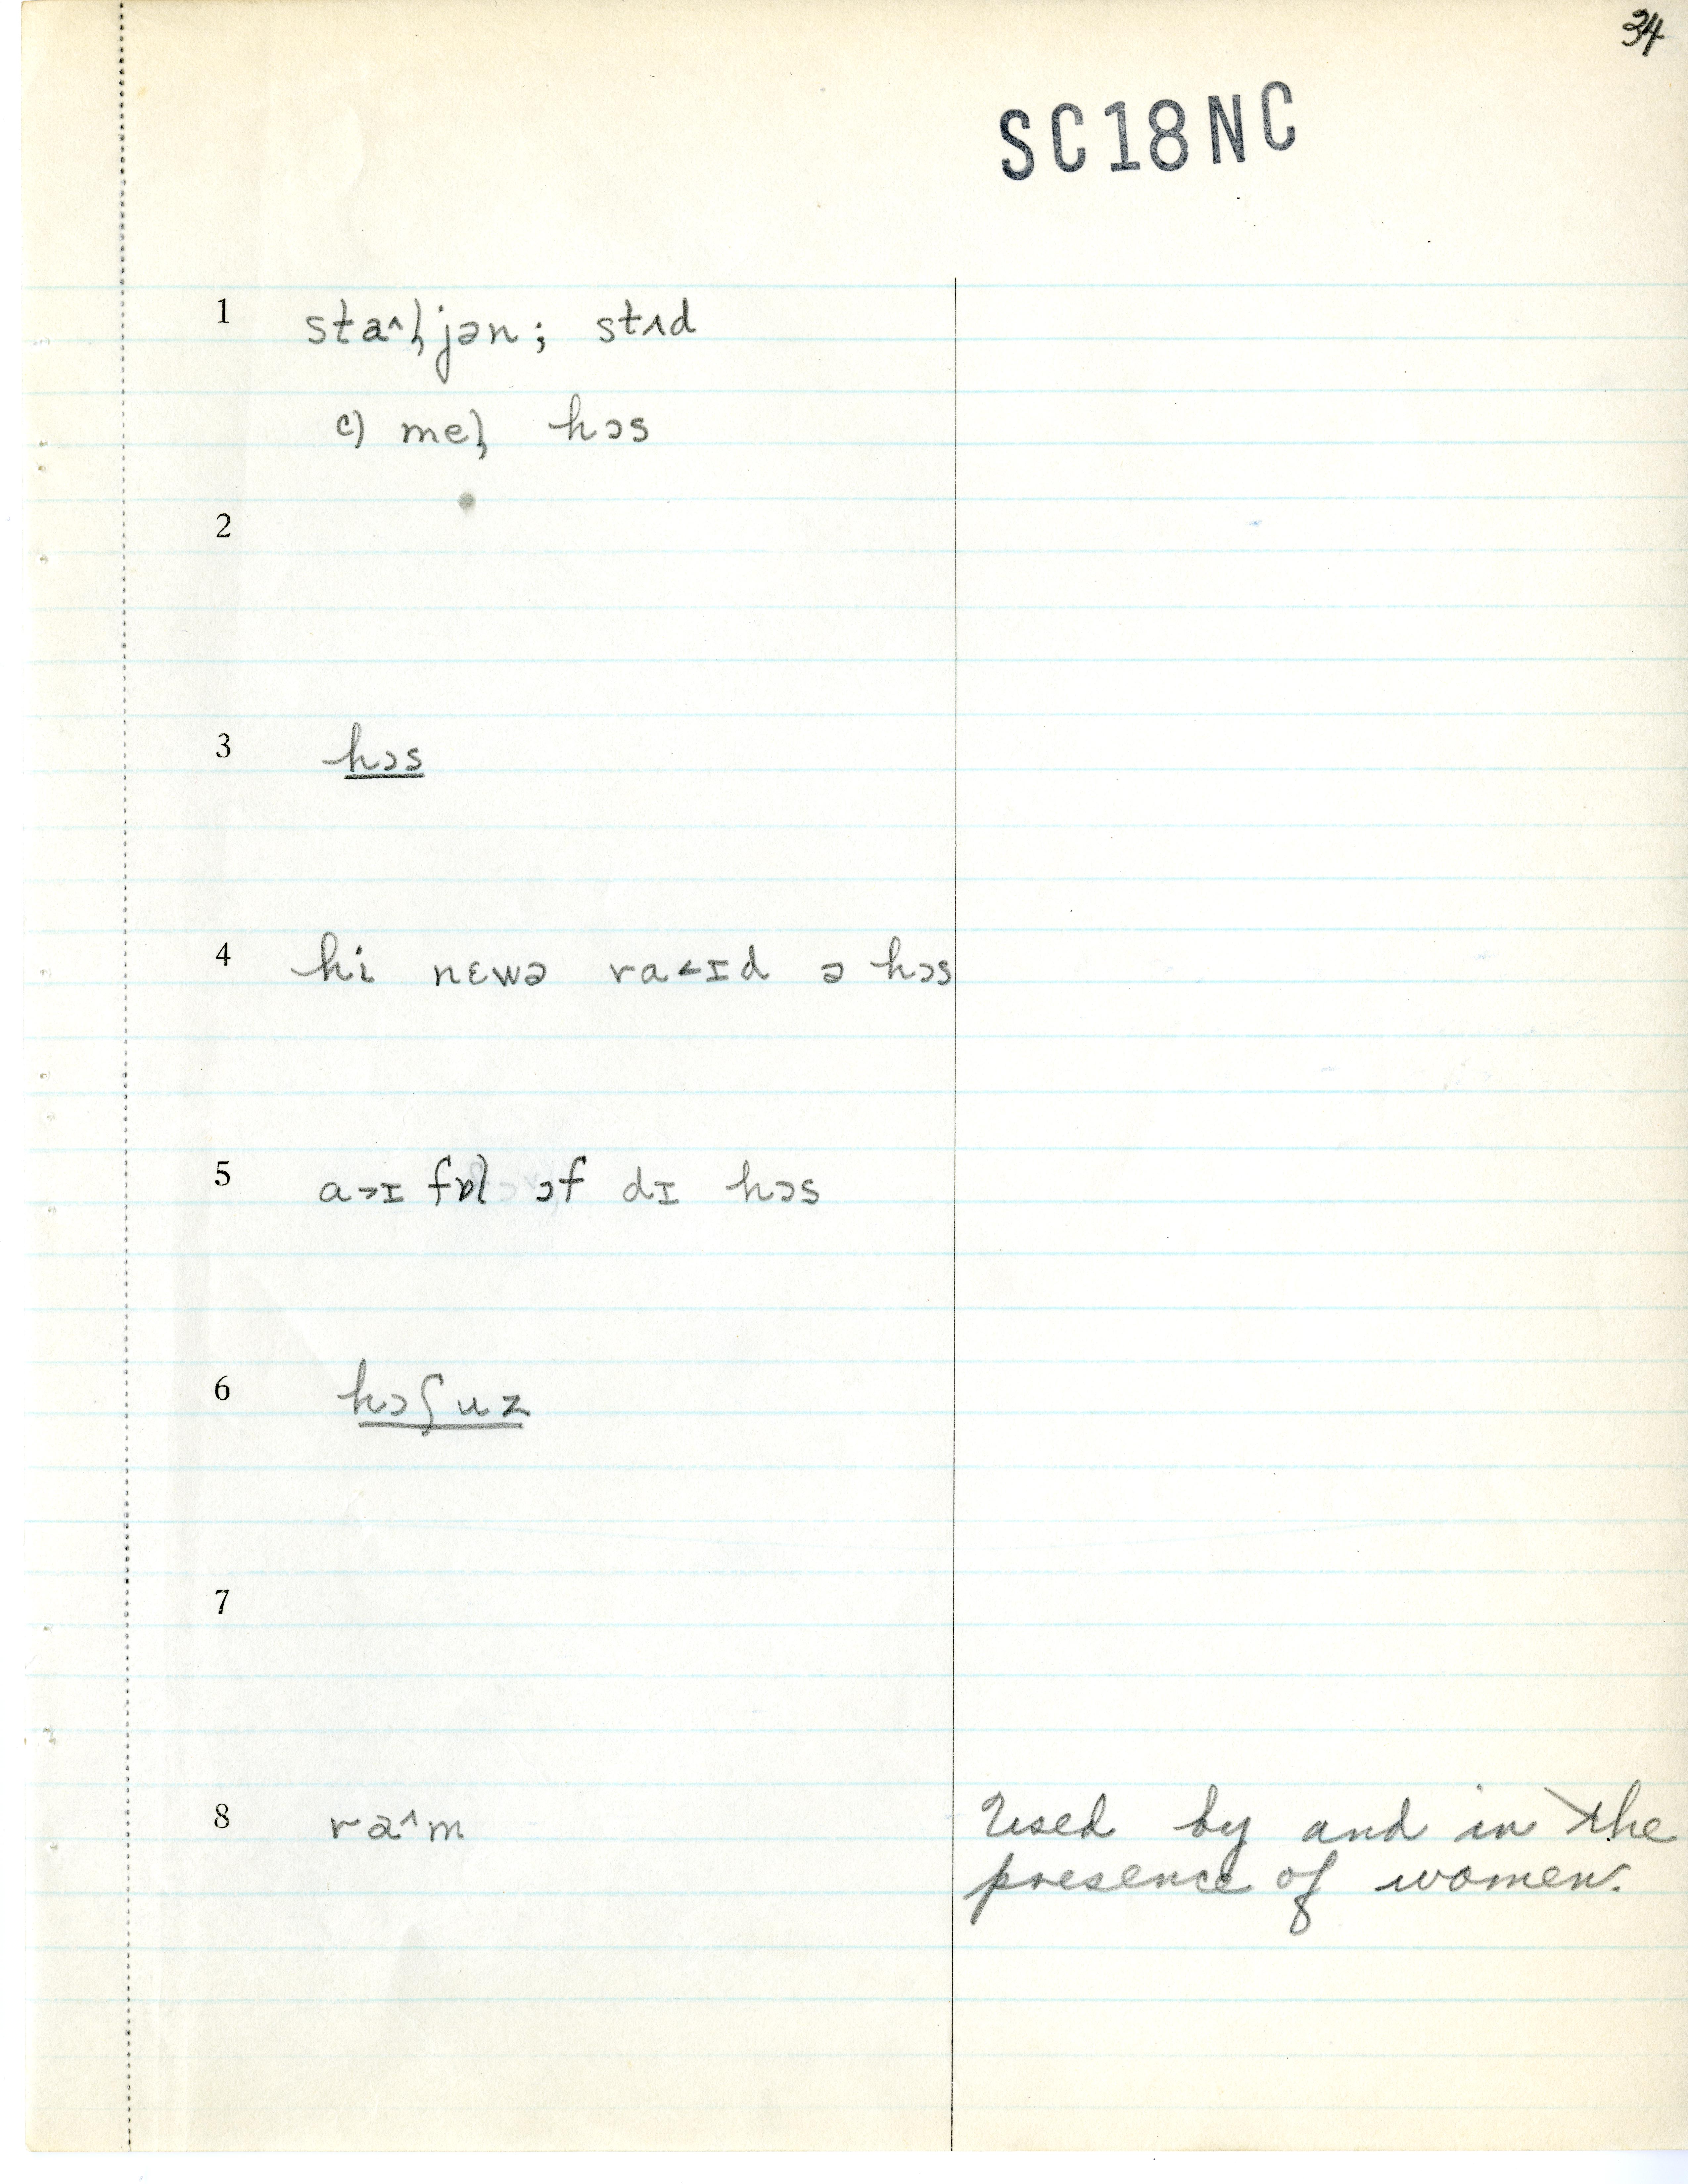 34
SC18NC
1 sta^ɫjən; stʌd
c) meɫ hɔs
2
3 hɔs
4 hi nɛwə ra<ɪd ə hɔs
5 a>ɪ fɒl ɔf dɪ hɔs
6 hɔʃuz
7
8 ra^m Used by and in the
presence of women.